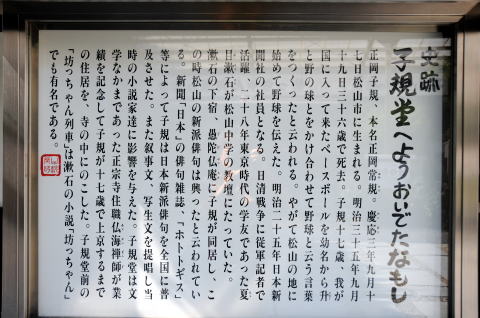 史跡
子規堂へようおいでたなもし
正岡子規、本名正岡常規。慶応三年九月十
七日松山市に生まれる。明治三十五年九月
十九日三十六歳で死去。子規十七歳、我が
国に入って来たベースボールを幼名から升
と野の球とをかけ合わせて野球と云う言葉
をつくったと云われる。やがて松山の地に
始めて野球を伝えた。明治二十五年日本新
聞社の社員となる。日清戦争に従軍記者で
活躍、二十八年東京時代の学友であった夏
目漱石が松山中学の教壇にたっていた。
漱石の下宿、愚陀仏庵に子規が同居し、こ
の時松山の新派俳句は興ったと云われてい
る。新聞「日本」の俳句雑誌・「ホトトギス」
等によって子規は日本新派俳句を全国に普
及させた。また叙事文、写生文を提唱し当
時の小説家達に影響を与えた。子規堂は文
学なかまであった正宗寺住職仏海禅師が業
績を記念して子規が十七歳で上京するまで
の住居を、寺の中にのこした。子規堂前の
「坊っちゃん列車」は漱石の小説「坊っちゃん」
でも有名である。